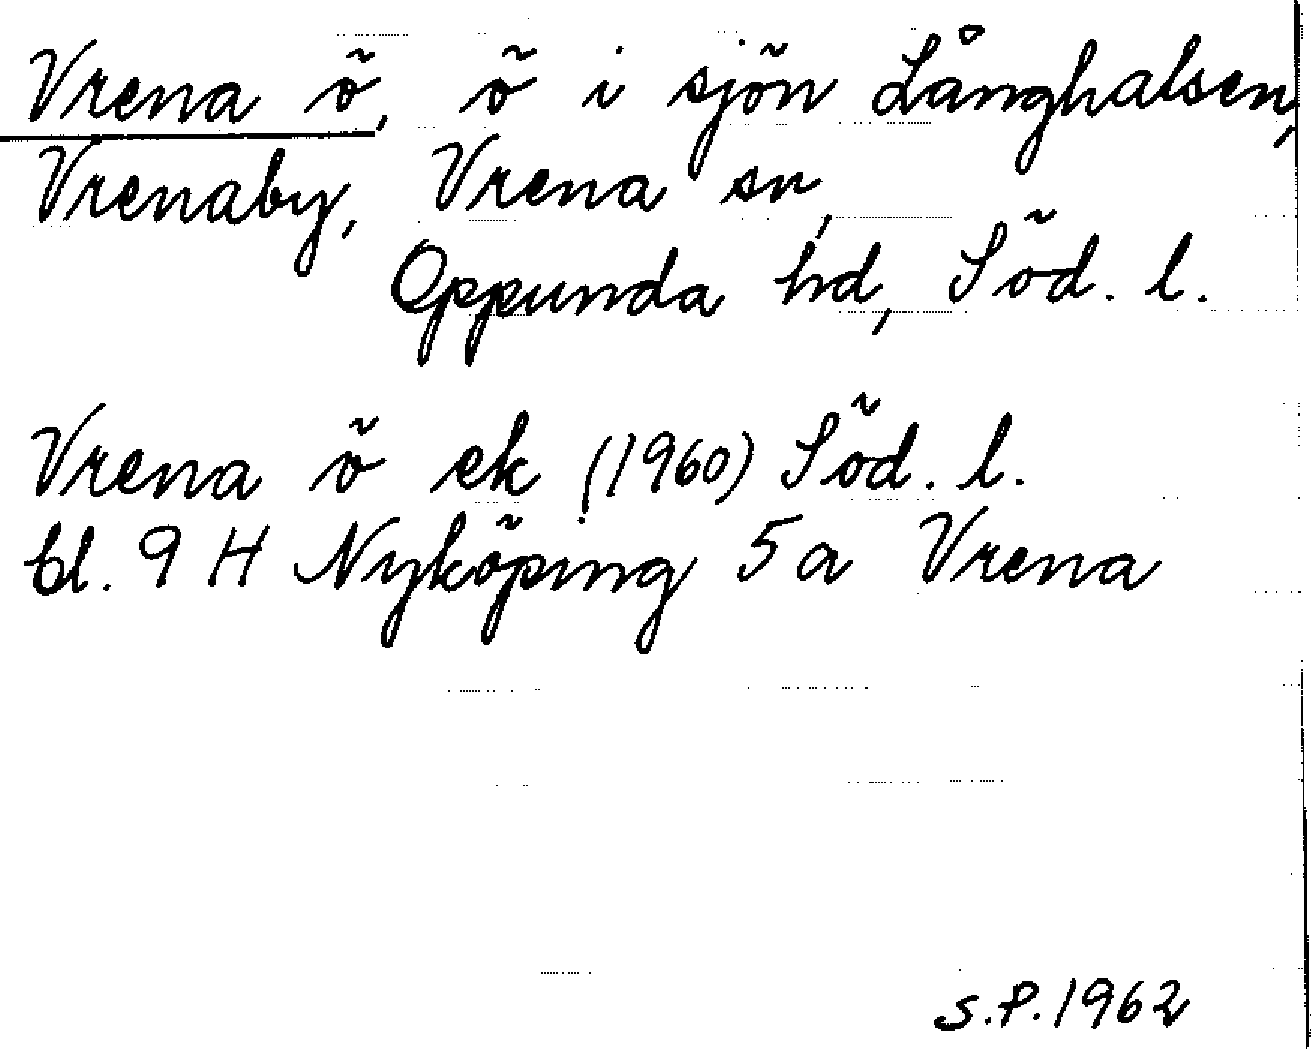 Vrena ö, ö i sjön Långhalsen,
Vrenaby, Vrena sn,
Oppunda hd, Söd. l.
Vrena ö ek (1960) Söd. l.
bl. 9 H Nyköping 5 a Vrena
S.P. 1962